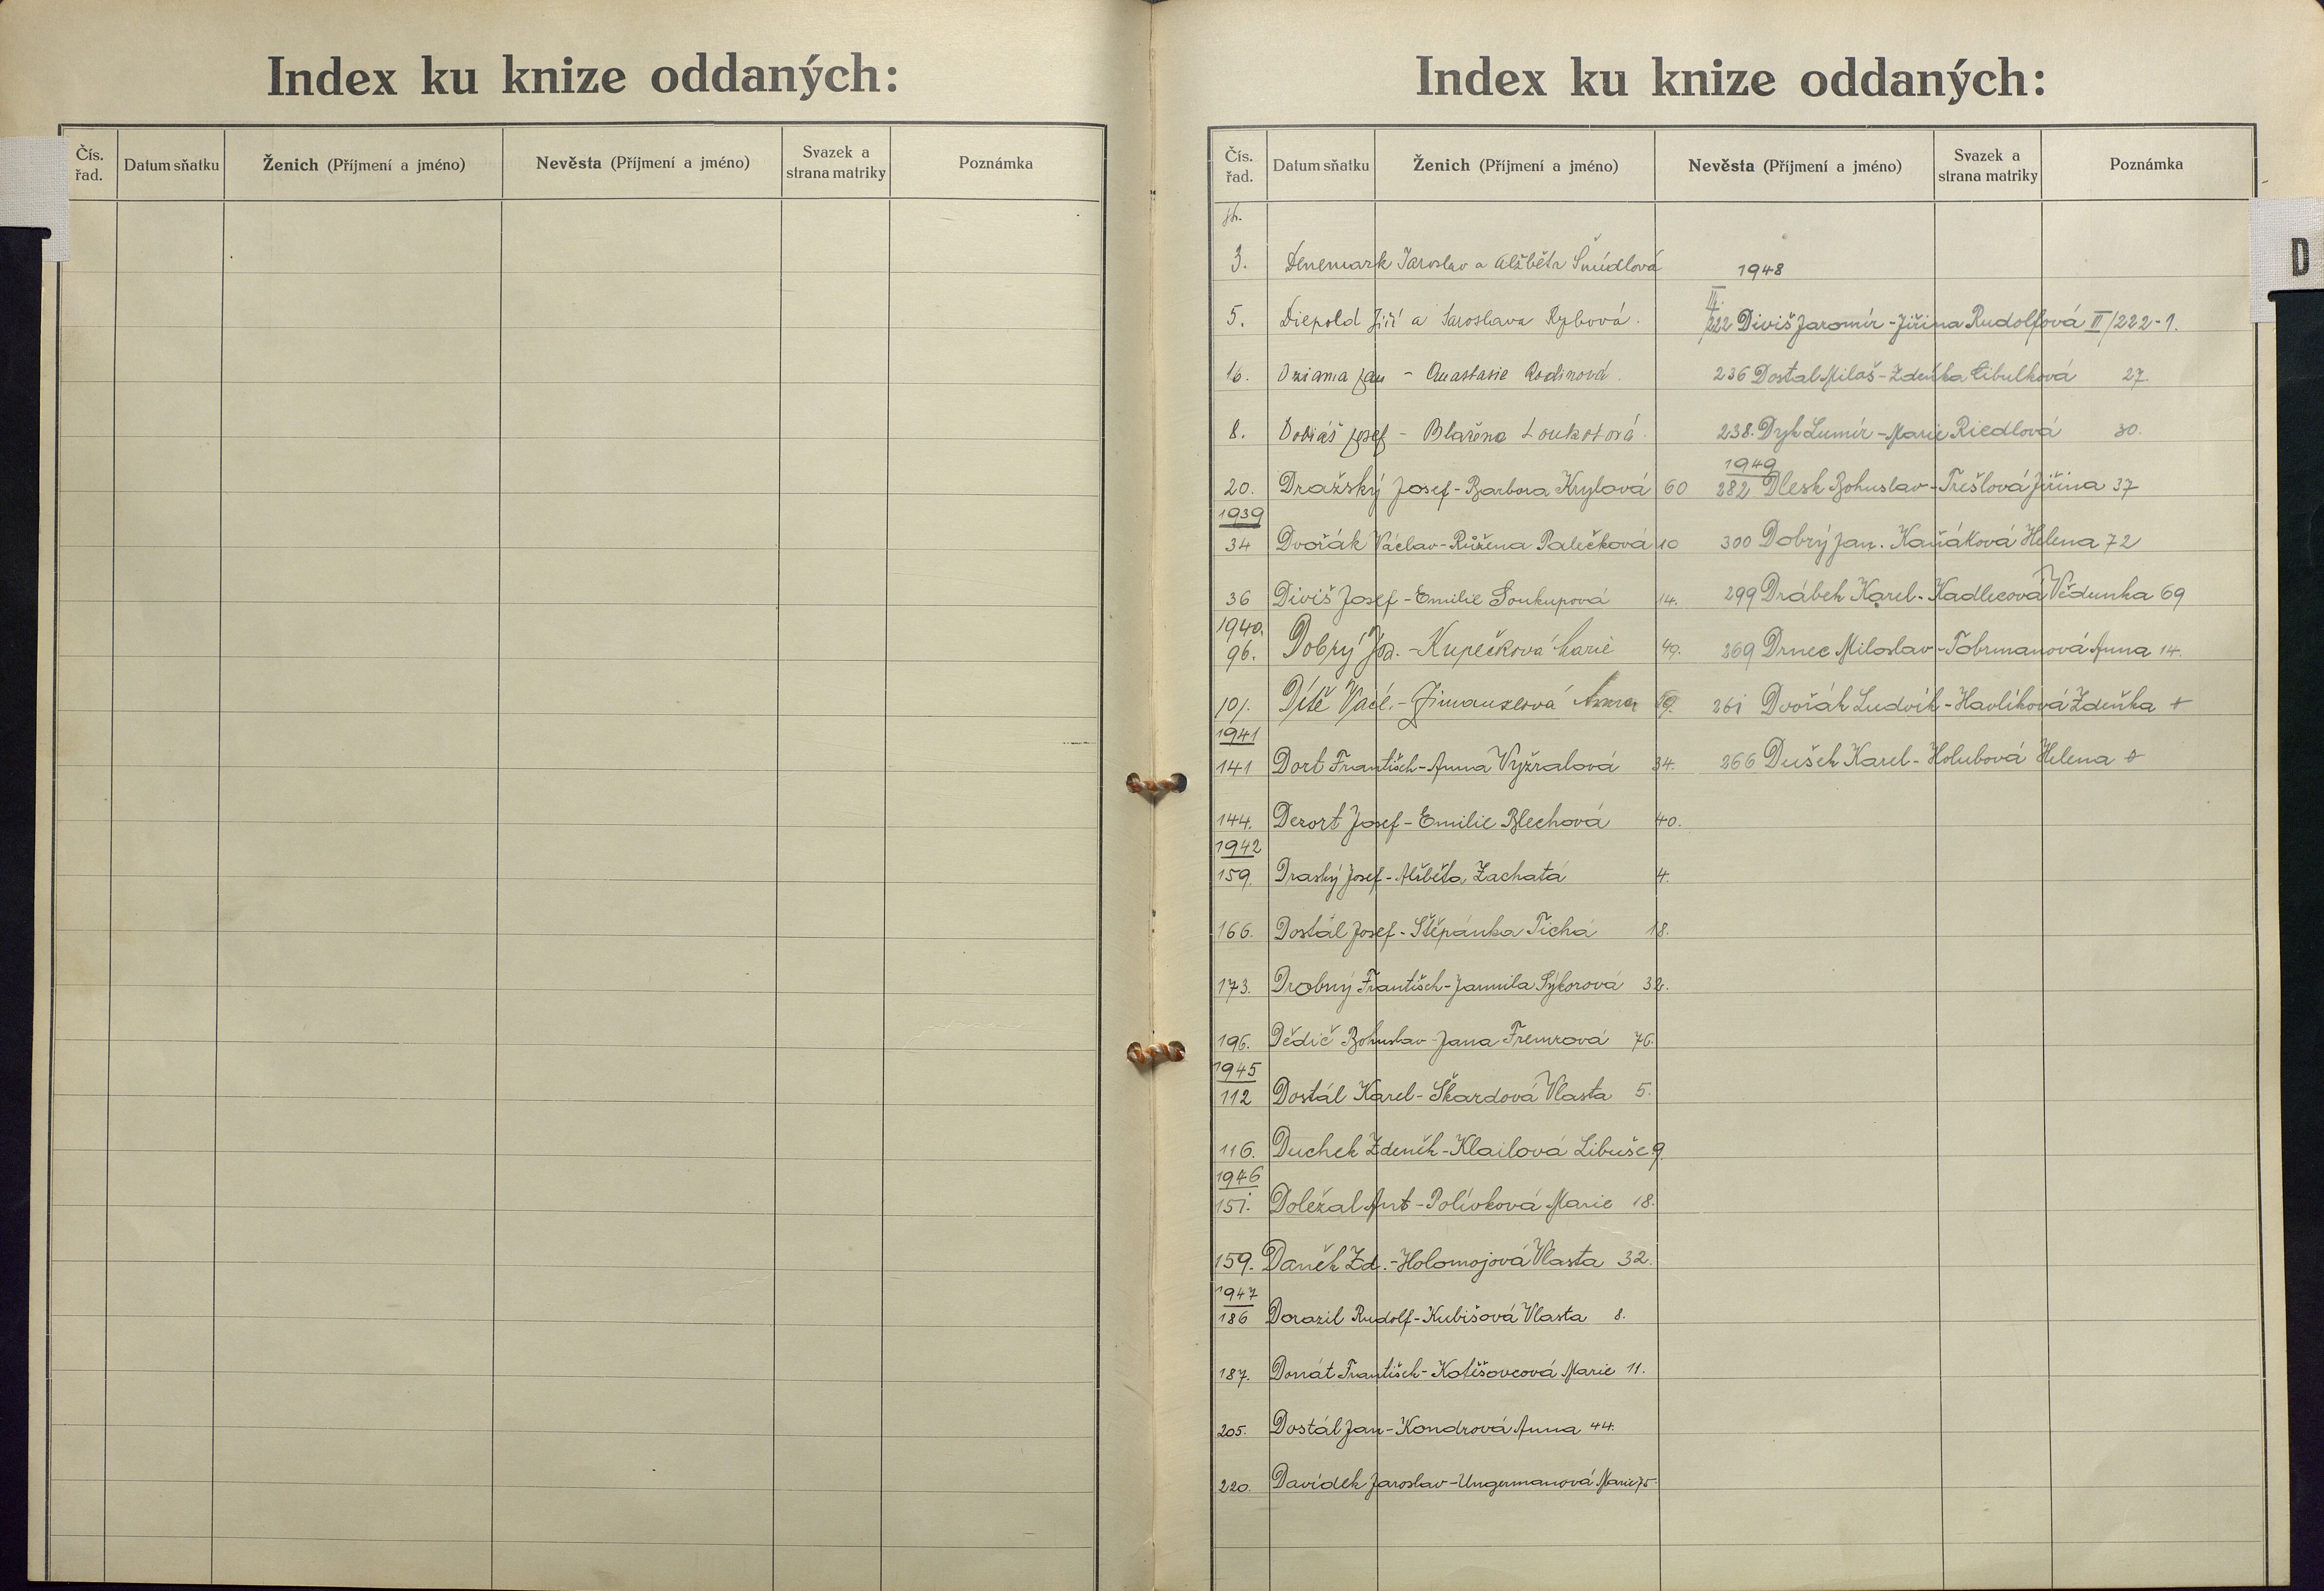 Index ku knize oddaných:
Čís. řad. Datum sňatku Ženich (Příjmení a jméno) Nevěsta (Příjmení a jméno) Svazek a strana matriky Poznámka
Index ku knize oddaných:
Čís. řad. Datum sňatku Ženich (Příjmení a jméno) Nevěsta (Příjmení a jméno) Svazek a strana matriky Poznámka
D
3. Denemark Jaroslav a Alžběta Šmídlová
5. Diepold Jiří a Jaroslava Rybová.
16. Dziama Jan - Anastasie Rodinová.
8. Dobiáš Josef - Blažena Loukotová.
20. Dražský Josef - Barbora Krylová 60
1939
34 Dvořák Václav - Růžena Palečková 10
36 Diviš Josef - Emilie Soukupová 14.
1940.
96. Dobrý Jos. - Kupečková Marie 49.
101. Dítě Václ. - Anna 59.
1941
141 Dort František - Anna Vyžralová 34.
144. Dezort Josef - Emilie Blechová 40.
1942
159. Draský Josef - Alžběta Zachatá 4.
166. Dostál Josef - Štěpánka Tichá 18.
173. Drobný František - Jarmila Sýkorová 32.
196. Dědič Bohuslav - Jana Fremrová 76.
1945
112 Dostál Karel - Škardová Vlasta 5.
116. Duchek Zdeněk - Klailová Libuše 9.
1946
151. Doležal Ant - Polívková Marie 18.
159. Daněk Zd. - Holomojová Vlasta 32.
1947
186 Dorazil Rudolf - Kubišová Vlasta 8.
187. Donát František - Kotěšovcová Marie 11.
205. Dostál Jan - Kondrová Anna 44.
220. Davídek Jaroslav - Ungermanová Marie 75.
1948
III.
222 Diviš Jaromír - Jiřina Rudolfová III/222-1.
236 Dostal Miloš - Zdeňka Cibulková 27.
238. Dyk Lumír - Marie Riedlová 30.
1949
282 Dlesk Bohuslav - Třešlová Jiřina 37
300 Dobrý Jan. Kaňáková Helena 72
299 Drábek Karel. Kadlecová Vědunka 69
269 Drnec Miloslav - Fobrmanová Anna 14.
261 Dvořák Ludvík - Havlíková Zdeňka +
266 Dušek Karel - Holubová Helena